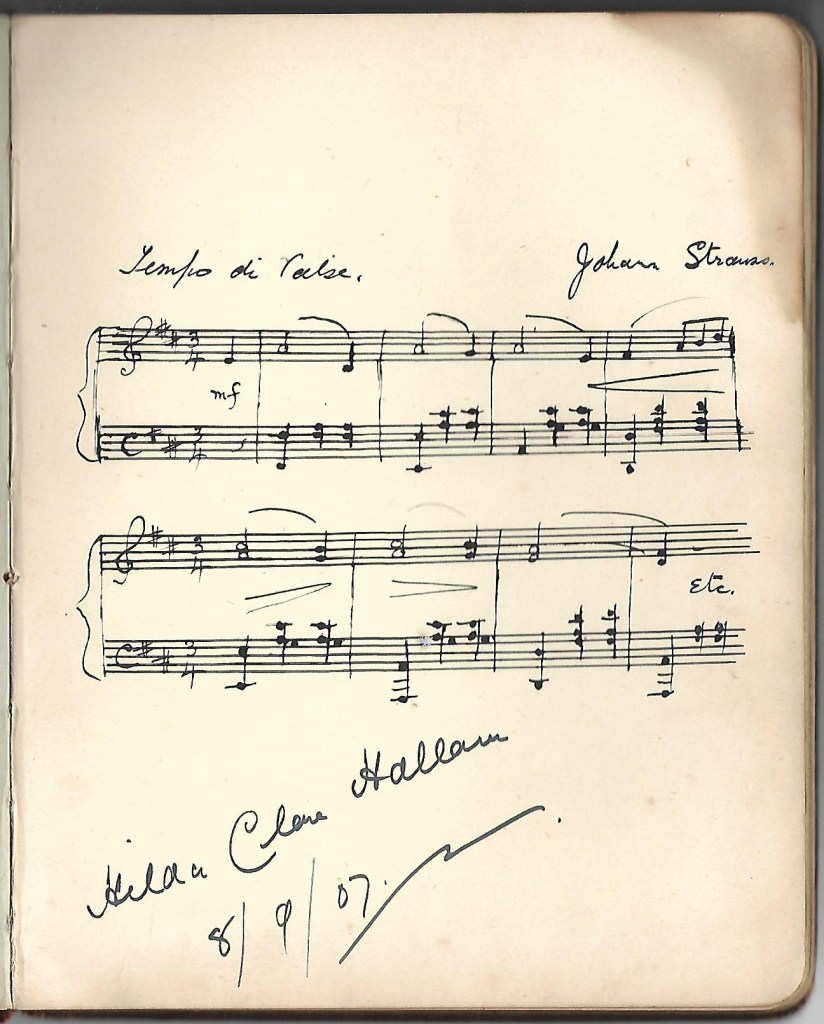 Tempo di Valse.
Johann Strauss.
3/4
mf
3/4
3/4
Etc.
3/4
Hilda Clare Hallam
8/9/07.